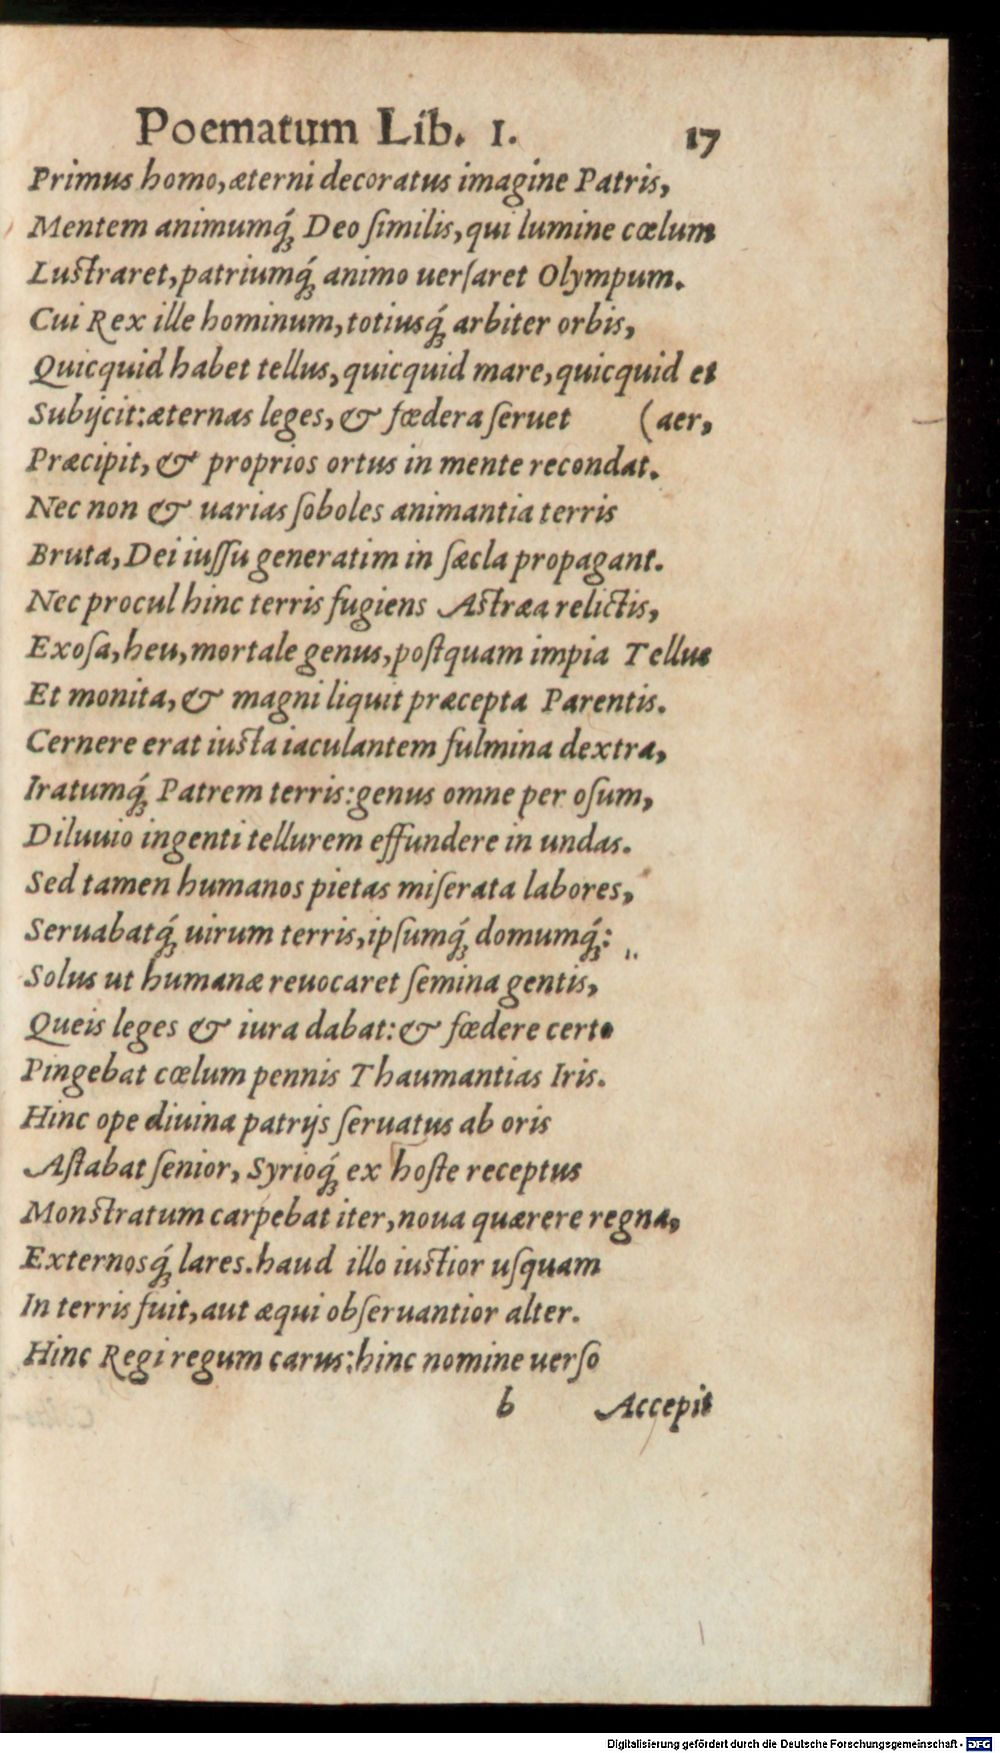 Poematum Lib. 1. 17
Primus homo, æterni decoratus imagine Patris,
Mentem animumq́ꝫ Deo ſimilis, qui lumine cœlum
Luſtraret, patriumq́ꝫ animo uerſaret Olympum.
Cui Rex ille hominum, totiusq́ꝫ arbiter orbis,
Quicquid habet tellus, quicquid mare, quicquid et
Subijcit: æternas leges, & fœdera ſeruet (aer,
Præcipit, & proprios ortus in mente recondat.
Nec non & uarias ſoboles animantia terris
Bruta, Dei iuſſu generatim in ſæcla propagant.
Nec procul hinc terris fugiens Aſtræa relictis,
Exoſa, heu, mortale genus, poſtquam impia Tellus
Et monita, & magni liquit præcepta Parentis.
Cernere erat iuſta iaculantem fulmina dextra,
Iratumq́ꝫ Patrem terris: genus omne per oſum,
Diluuio ingenti tellurem effundere in undas.
Sed tamen humanos pietas miſerata labores,
Seruabatq́ꝫ uirum terris, ipſumq́ꝫ domumq́ꝫ:
Solus ut humanæ reuocaret ſemina gentis,
Queis leges & iura dabat: & fœdere certo
Pingebat cœlum pennis Thaumantias Iris.
Hinc ope diuina patrijs ſeruatus ab oris
Aſtabat ſenior, Syrioq́ꝫ ex hoſte receptus
Monſtratum carpebat iter, noua quærere regna,
Externosq́ꝫ lares. haud illo iuſtior uſquam
In terris fuit, aut æqui obſeruantior alter.
Hinc Regi regum carus: hinc nomine uerſo
b Accepit
Digitalisierung gefördert durch die Deutsche Forschungsgemeinschaft - DFG